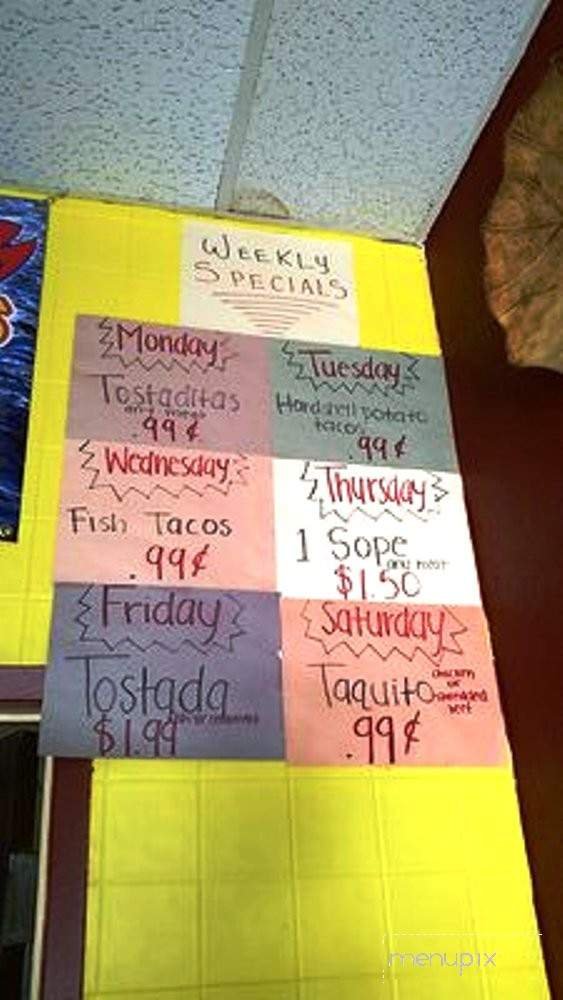 WEEKLY
SPECIALS
Monday
Tostaditas
.99¢
Tuesday
Hardshell potato
tacos
.99¢
Wednesday
Fish Tacos
.99¢
Thursday
1 Sope
any meat
$1.50
Friday
Tostada
$1.99
Saturday
Taquito
chicken
or
shredded
beef
.99¢
menupix